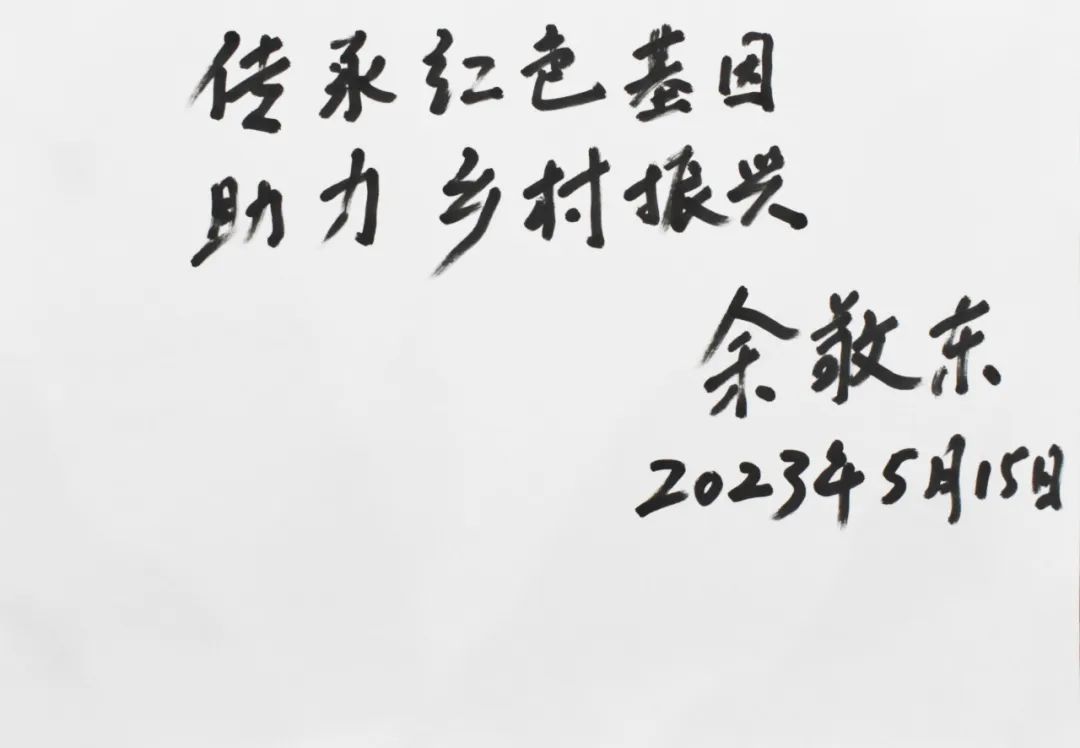 传承红色基因
助力乡村振兴
余敬东
2023年5月15日